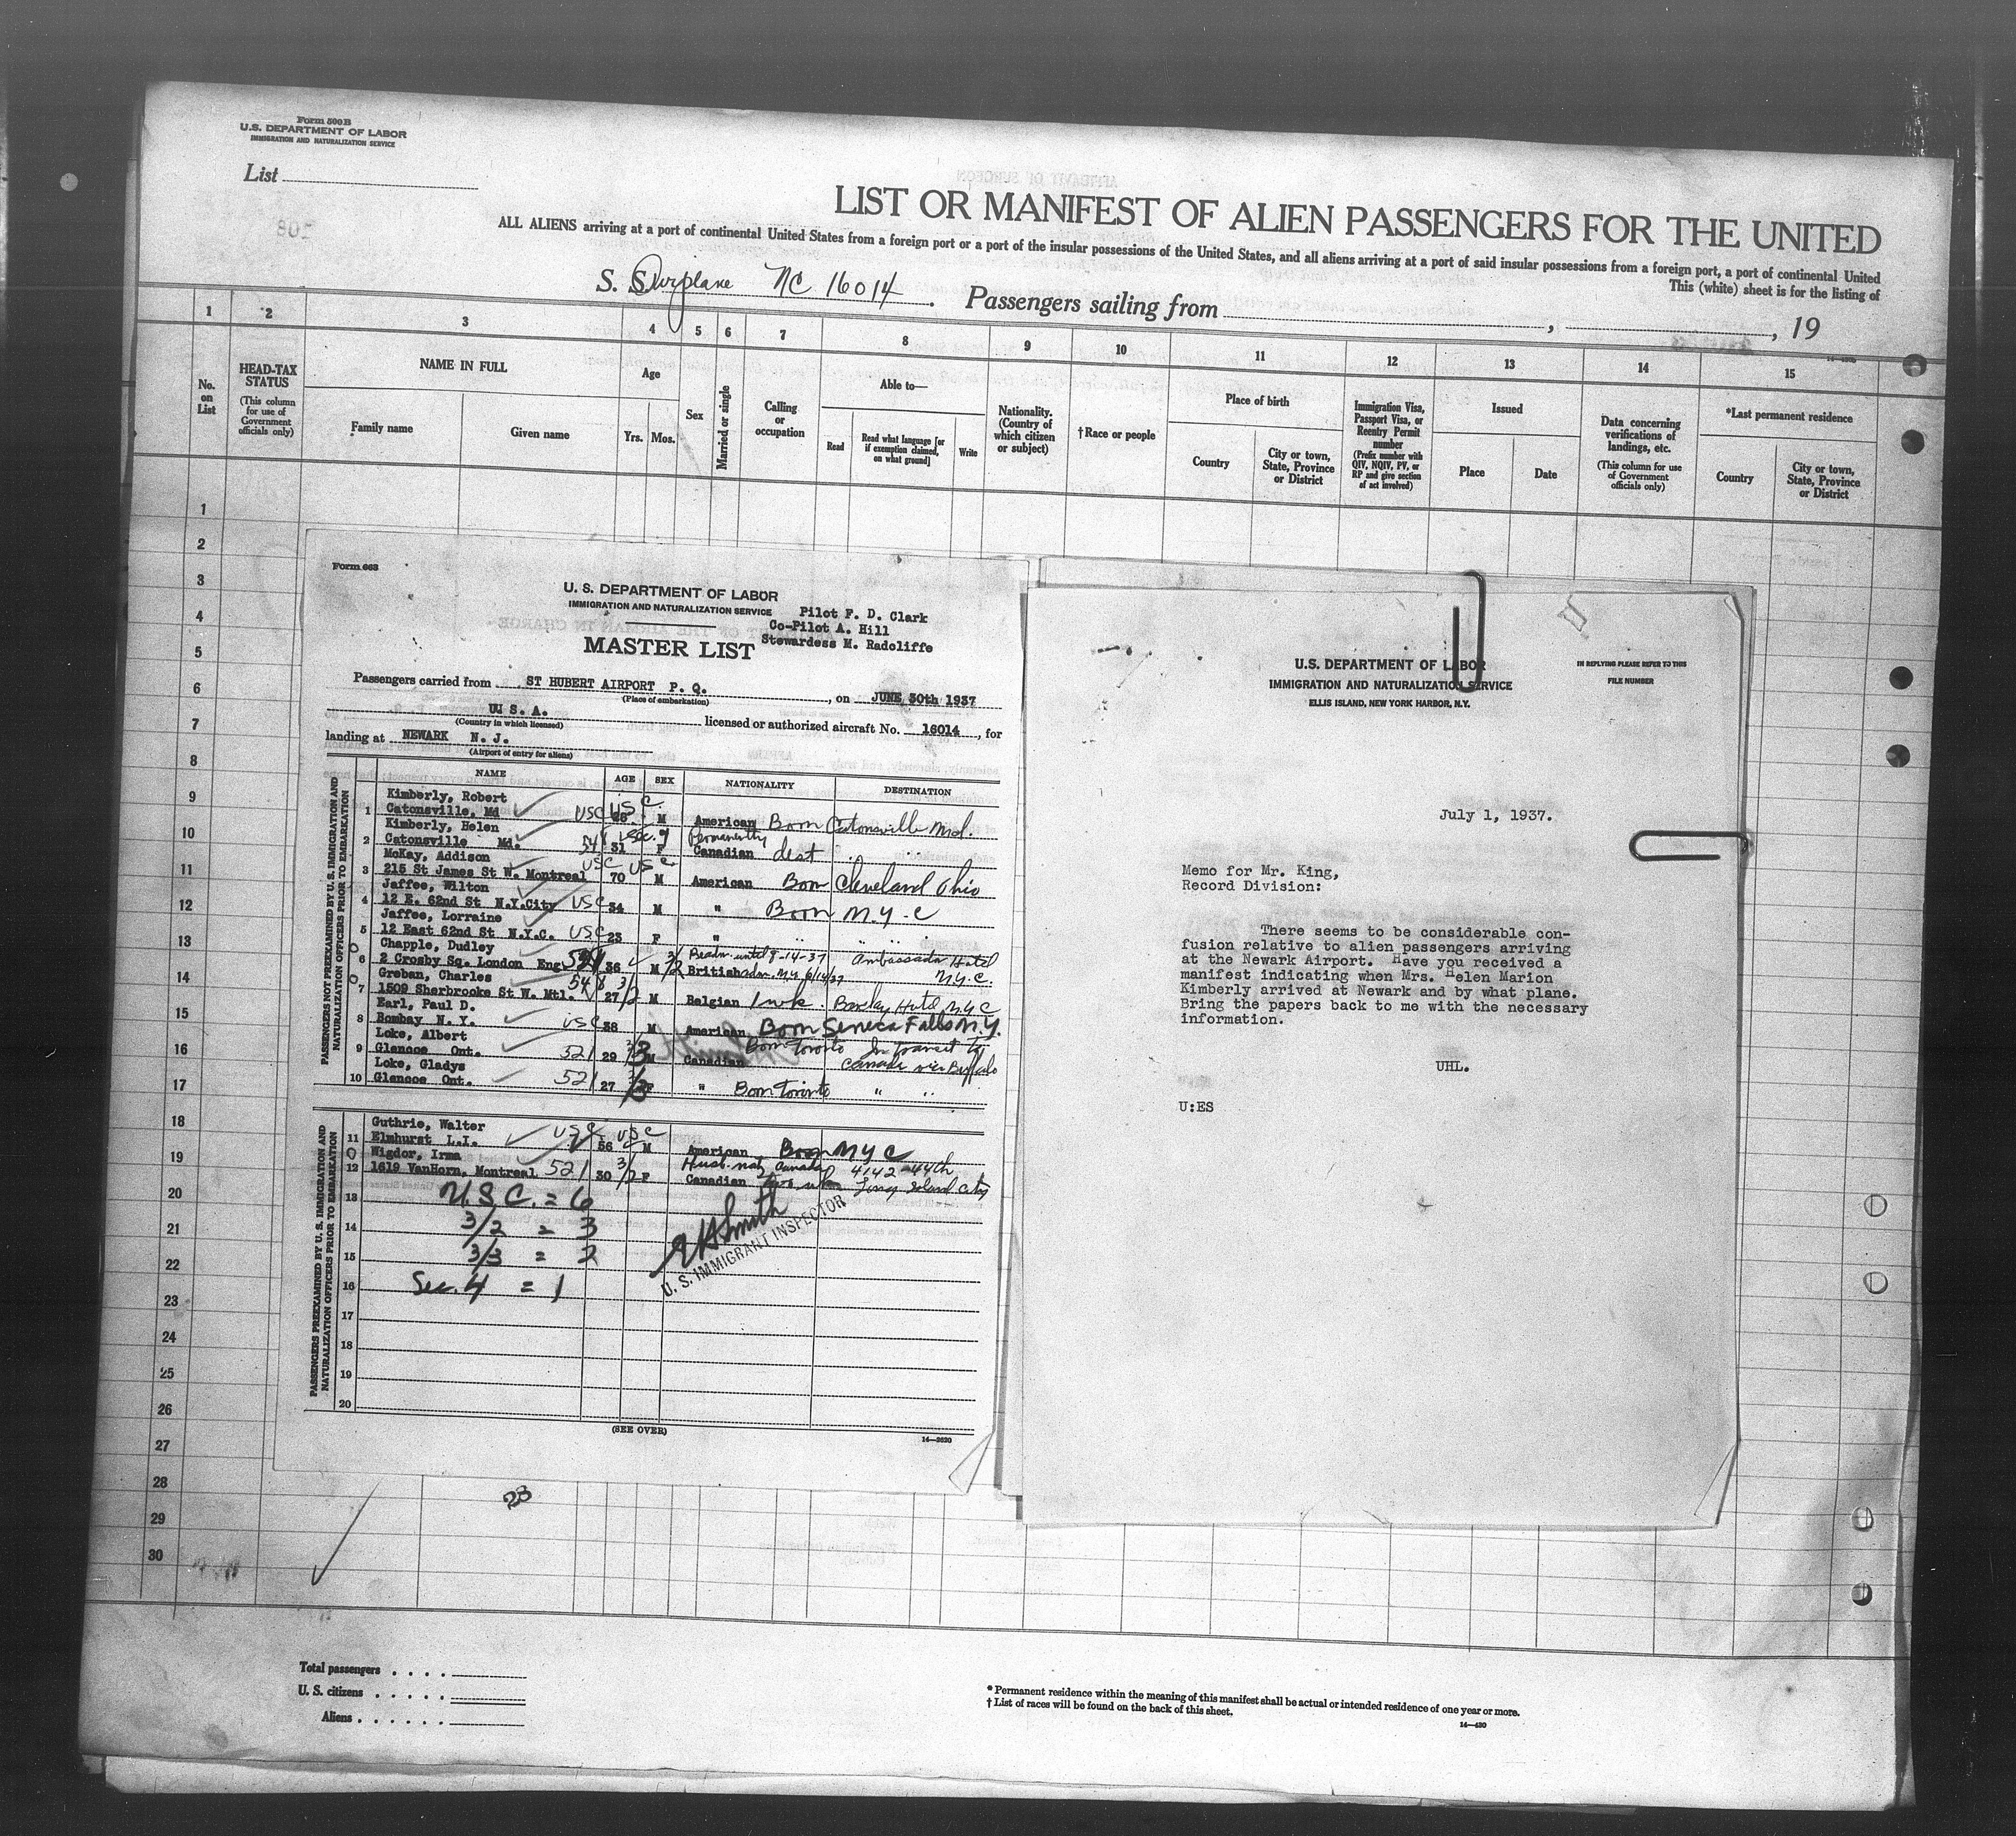 Form 500B
U.S. DEPARTMENT OF LABOR
IMMIGRATION AND NATURALIZATION SERVICE
List
LIST OR MANIFEST OF ALIEN PASSENGERS FOR THE UNITED
ALL ALIENS arriving at a port of continental United States from a foreign port or a port of the insular possessions of the United States, and all aliens arriving at a port of said insular possessions from a foreign port, a port of continental United
This (white) sheet is for the listing of
S. S. Airplane NC 16014. Passengers sailing from , , 19
1 2 3 4 5 6 7 8 9 10 11 12 13 14 15
No. on List
HEAD-TAX STATUS
(This column for use of Government officials only)
NAME IN FULL
Family name
Given name
Age
Yrs. Mos.
Sex
Married or single
Calling or occupation
Able to—
Read
Read what language [or if exemption claimed, on what ground]
Write
Nationality. (Country of which citizen or subject)
†Race or people
Place of birth
Country
City or town, State, Province or District
Immigration Visa, Passport Visa, or Reentry Permit number
(Prefix number with QIV, NQIV, PV, or RP and give section of act involved)
Issued
Place
Date
Data concerning verifications of landings, etc.
(This column for use of Government officials only)
*Last permanent residence
Country
City or town, State, Province or District
1
2
3
4
5
6
7
8
9
10
11
12
13
14
15
16
17
18
19
20
21
22
23
24
25
26
27
28
29
30
Form 663
U. S. DEPARTMENT OF LABOR
IMMIGRATION AND NATURALIZATION SERVICE
Pilot F. D. Clark
Co-Pilot A. Hill
Stewardess M. Radcliffe
MASTER LIST
Passengers carried from ST HUBERT AIRPORT P. Q., on JUNE 30th 1937
(Place of embarkation)
U. S. A. licensed or authorized aircraft No. 16014, for
(Country in which licensed)
landing at NEWARK N. J.
(Airport of entry for aliens)
NAME AGE SEX NATIONALITY DESTINATION
PASSENGERS NOT PREEXAMINED BY U. S. IMMIGRATION AND NATURALIZATION OFFICERS PRIOR TO EMBARKATION
Kimberly, Robert
1 Catonsville, Md USC USC M American Born Catonsville Md.
Kimberly, Helen Sec. 4 Permanently
2 Catonsville Md. 31 F Canadian dest " "
McKay, Addison USC USC
3 215 St James St W. Montreal 70 M American Born Cleveland Ohio
Jaffee, Wilton
4 12 E. 62nd St N.Y.City USC 34 M " Born N.Y.C
Jaffee, Lorraine
5 12 East 62nd St N.Y.C. USC 23 F " " " " "
Chapple, Dudley Readm. until 8-14-37 Ambassador Hotel
6 2 Crosby Sq. London Eng 521 36 M 3/2 British adm. N.Y. 6/14/37 N.Y.C.
Greban, Charles 548 3/2
7 1509 Sherbrooke St W. Mtl. 27 M Belgian 1 wk. Barclay Hotel N.Y.C
Earl, Paul D.
8 Bombay N. Y. USC 38 M American Born Seneca Falls N.Y.
Loke, Albert Born Toronto In transit to
9 Glencoe Ont. 521 29 3/3 M Canadian Canada via Buffalo
Loke, Gladys
10 Glencoe Ont. 521 27 3/3 F " Born Toronto " "
PASSENGERS PREEXAMINED BY U. S. IMMIGRATION AND NATURALIZATION OFFICERS PRIOR TO EMBARKATION
Guthrie, Walter USC USC
11 Elmhurst L.I. 56 M American Born N Y C
Wigdor, Irma Husb. natz Canada 4142-44th
12 1619 VanHorn, Montreal 521 30 3/2 F Canadian two wk Long Island City
13 U.S.C. = 6
14 3/2 = 3
15 3/3 = 2
16 Sec. 4 = 1
17
18
19
20
Smith
U. S. IMMIGRANT INSPECTOR
(SEE OVER)
14—2620
23
U.S. DEPARTMENT OF LABOR
IMMIGRATION AND NATURALIZATION SERVICE
ELLIS ISLAND, NEW YORK HARBOR, N.Y.
IN REPLYING PLEASE REFER TO THIS
FILE NUMBER
July 1, 1937.
Memo for Mr. King,
Record Division:
There seems to be considerable con-
fusion relative to alien passengers arriving
at the Newark Airport. Have you received a
manifest indicating when Mrs. Helen Marion
Kimberly arrived at Newark and by what plane.
Bring the papers back to me with the necessary
information.
UHL.
U:ES
Total passengers . . . .
U. S. citizens . . . . .
Aliens . . . . . .
* Permanent residence within the meaning of this manifest shall be actual or intended residence of one year or more.
† List of races will be found on the back of this sheet.
14—430